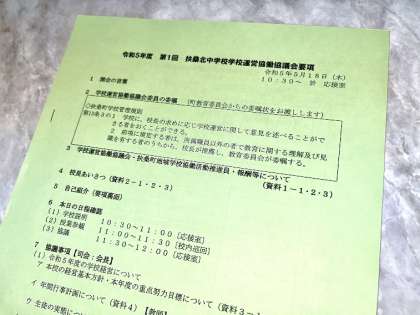 令和5年度 第1回 扶桑北中学校学校運営協働協議会要項
令和5年5月18日(木)
10:30~ 於 応接室
1 開会の言葉
2 学校運営協働協議会委員の委嘱 (町教育委員会からの委嘱状をお渡しします)
○扶桑町学校管理規則
第13条の3 1 学校に、校長の求めに応じ学校運営に関して意見を述べることがで
きる者をおくことができる。
2 前項に規定する者は、当該職員以外の者で教育に関する理解及び見
識を有する者のうちから、校長が推薦し、教育委員会が委嘱する。
3 学校運営協働協議会・扶桑町地域学校協働活動推進員・報酬等について
(資料1-1・2・3)
4 校長あいさつ(資料2-1・2・3)
5 自己紹介(要項裏面)
6 本日の日程確認
(1)学校説明 10:30~11:00[応接室]
(2)授業参観 11:00~11:30[校内巡回]
(3)協議 11:30~12:00[応接室]
7 協議事項【司会:会長】
(1)令和5年度の学校経営について
ア 本校の経営基本方針・本年度の重点努力目標について(資料3-
イ 年間行事計画について(資料4)【教頭】
ウ 生徒の実態について